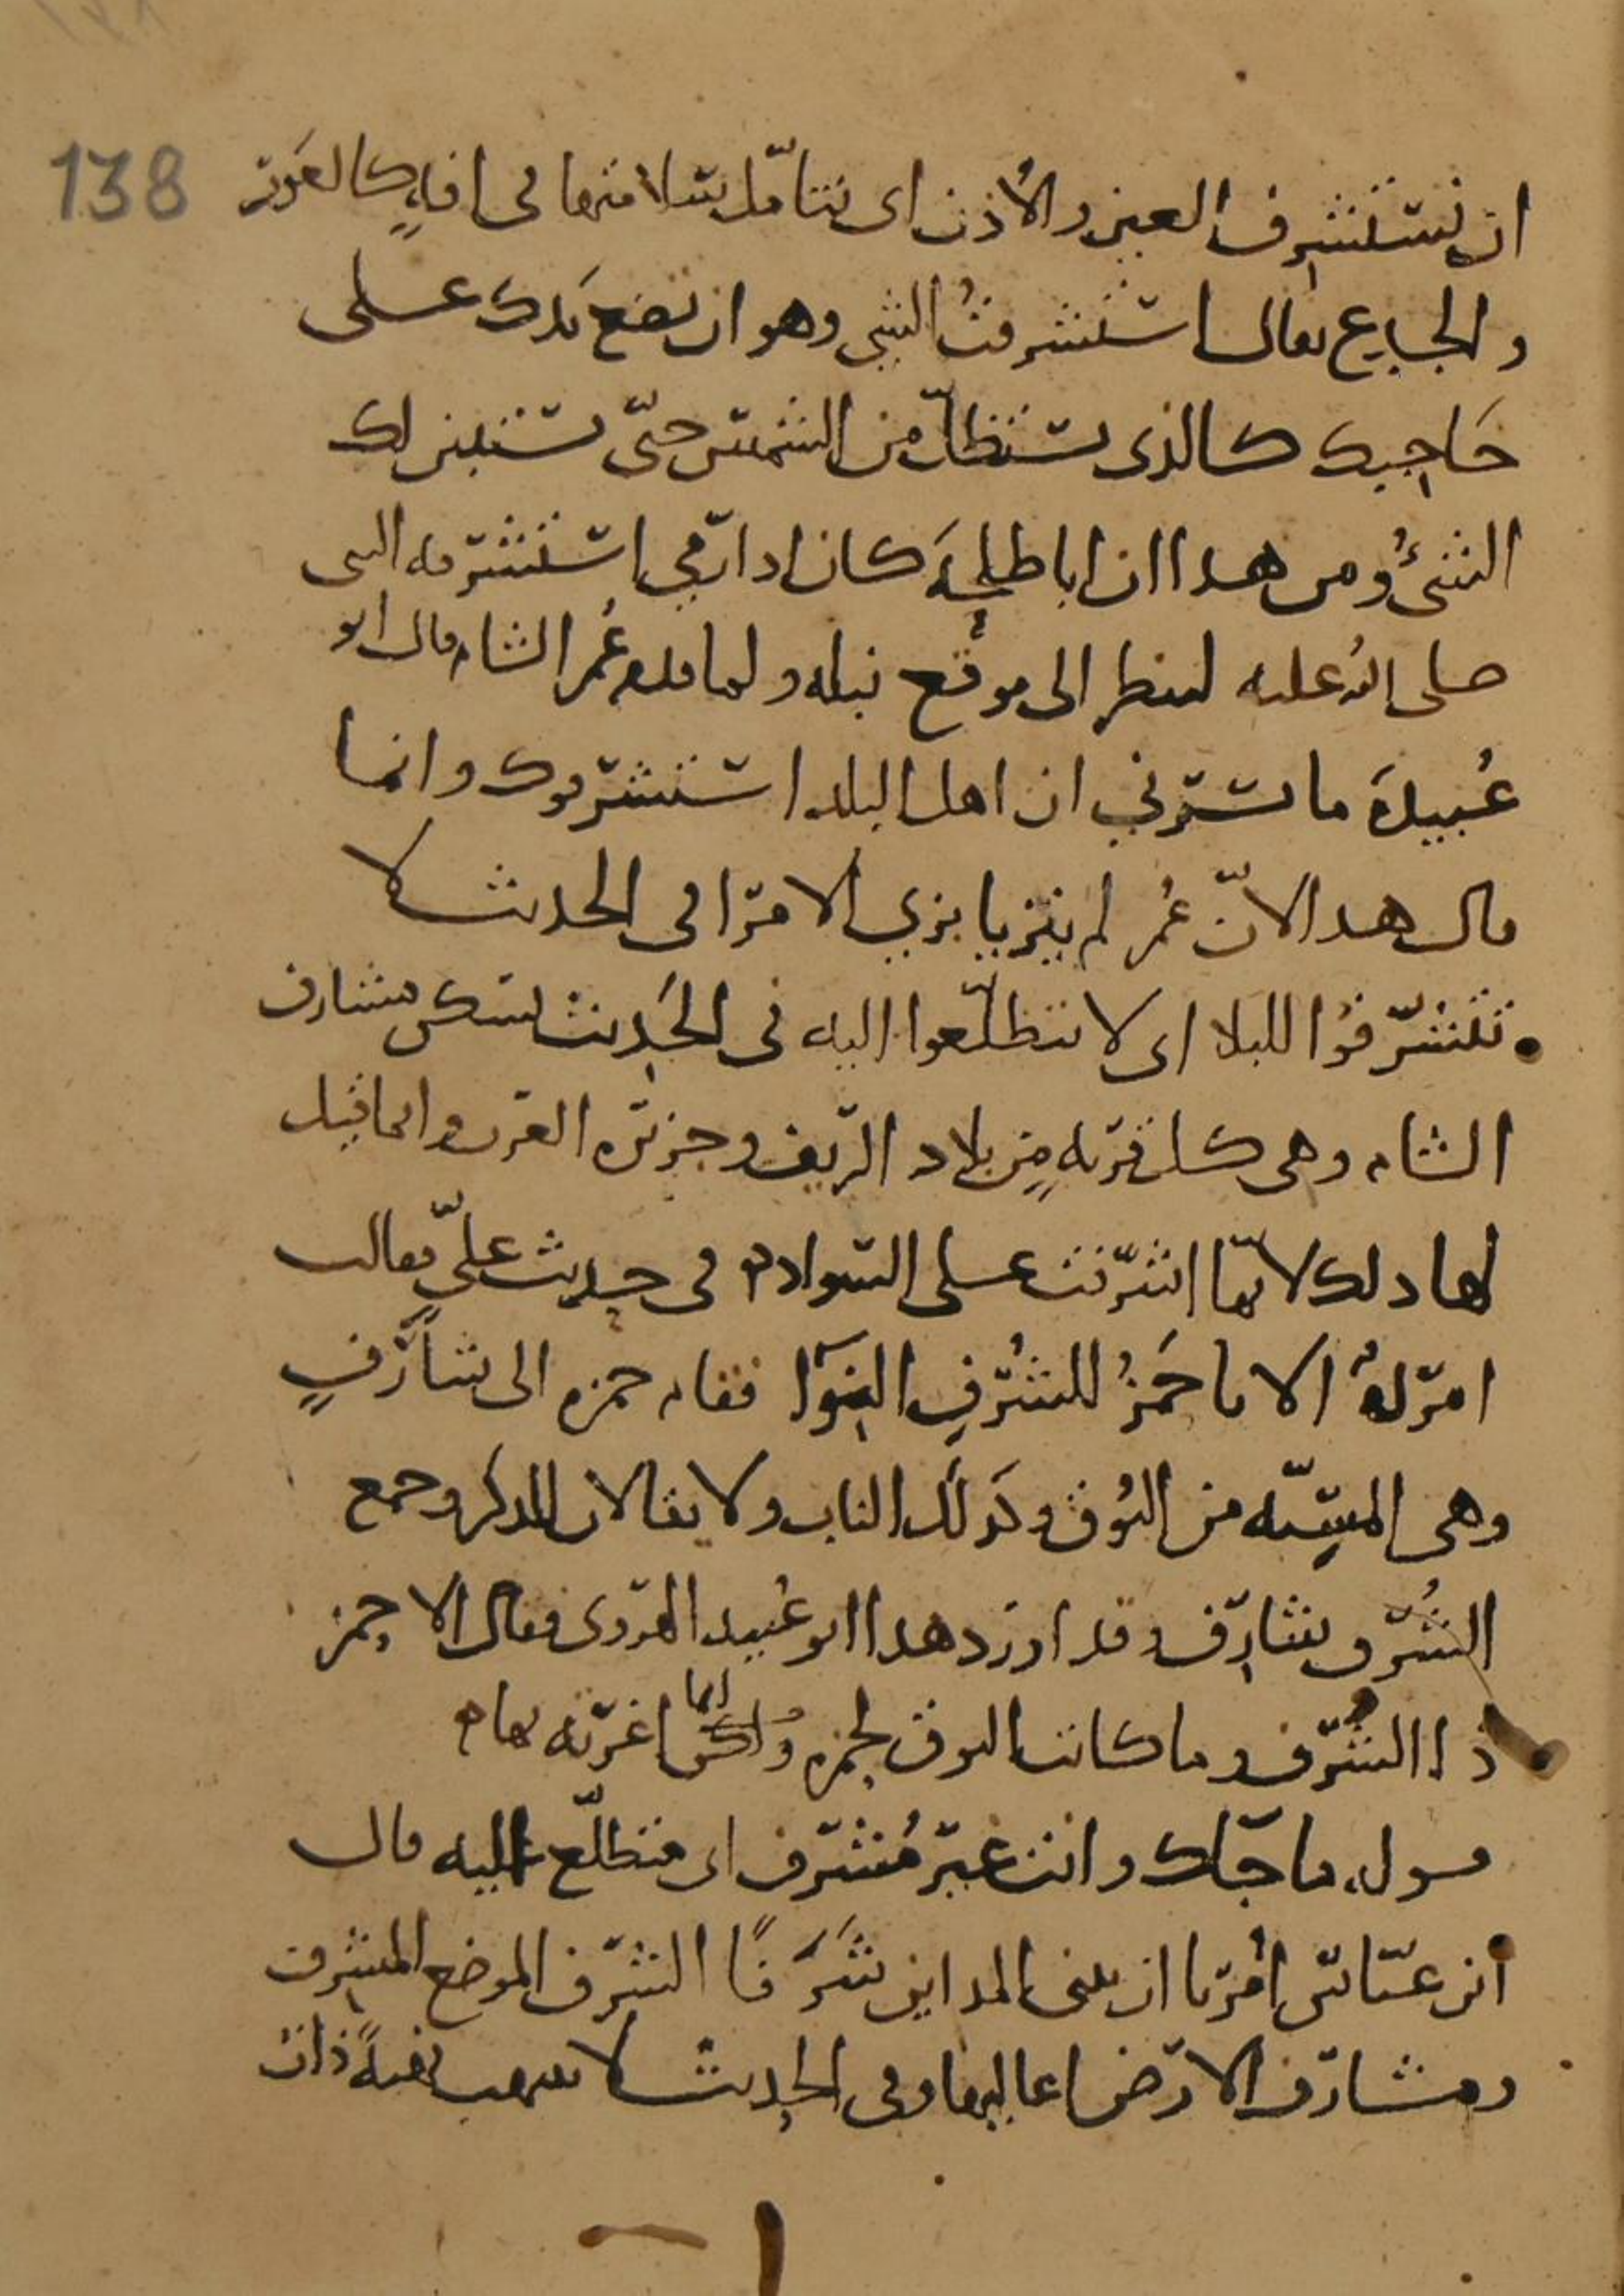 138
ان نستشرف العين والاذن اى نتامّل سلامتهما من افةٍ كالعَور
والجدع يقال استشرفتُ الشى وهو ان تضع يَدك على
حَاجبك كالذى يستظلّ من الشمس حتّى يستبين لك
الشئُ ومن هذا ان ابا طلحةَ كان اذا رَمى استشرفه النبى
صلى الله عليه لينظر الى موقع نبله ولما قدم عُمر الشام قال ابو
عُبيدةَ ما يسرّنى ان اهل البلد استشرفوك وانما
قال هذا لانّ عُمر لم يتزيا بزي الامرا فى الحديث لا
تشرّفوُا للبلا اى لا تتطلّعوا اليه فى الحَديث يسكن مشارف
الشام وهى كل قريه مِنٍ بلاد الريف وجزيره العرب وانما قيل
لها ذلك لانّها اشرفت على السواد ه فى حديث علىّ فقالت
امرَاهٌ الا يا حَمزُ للشُرفِ النِوَآ فقام حمزه الى شارفٍ
وهى المسِنّه من النُوق وكذلك الناب ولا يقالان للذكر وجمع
الشُرف شارف وقد اورد هذا ابو عُبيد الهروى فقال الا حمز
ذا الشُرف وما كانت النوق لحمزه وانما اغرته بها ه
قوله ما جَآك وانت غير مُشرف اى متطلّع اليه قال
ابن عبّاس اُمرنا ان نبنى المداين شَرَفًا الشرف الموضع المشرف
ومشارف الارض اعاليها وفى الحديث لا ينتهب نهبةً ذات